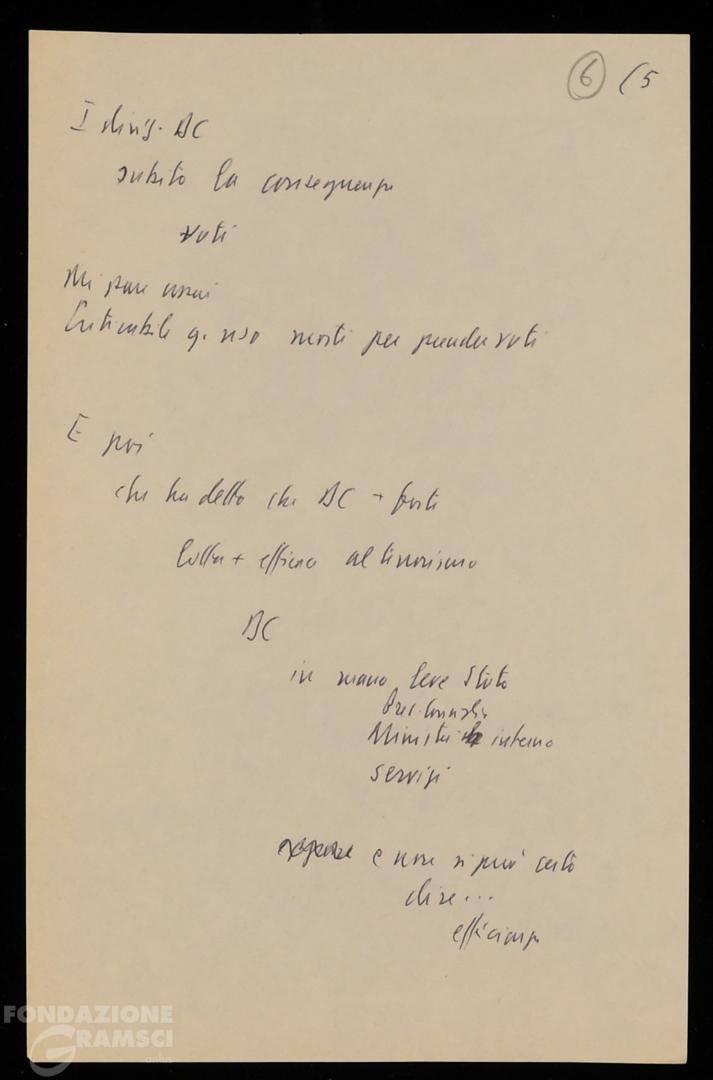 6 (5
I dirig. DC
subito la conseguenza
voti
Mi pare assai
criticabile q. uso morti per prender voti
E poi
chi ha detto che DC + forti
lotta + efficace al terrorismo
DC
in mano leve Stato
Pres. Consiglio
Ministri interno
Servizi
e non si può certo
dire...
efficienza
FONDAZIONE
GRAMSCI
onlus